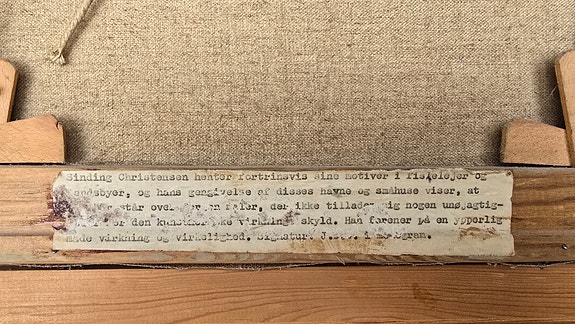 Sinding Christensen henter fortrinsvis sine motiver i fiskelejer og
byer, og hans gengivelse af disses havne og småhuse viser, at
står over en maler, der ikke tillader sig nogen unøjagtig-
for den virknings skyld. Han forener på en ypperlig
måde virkning og virkelighed. Signatur: J.S.C. i